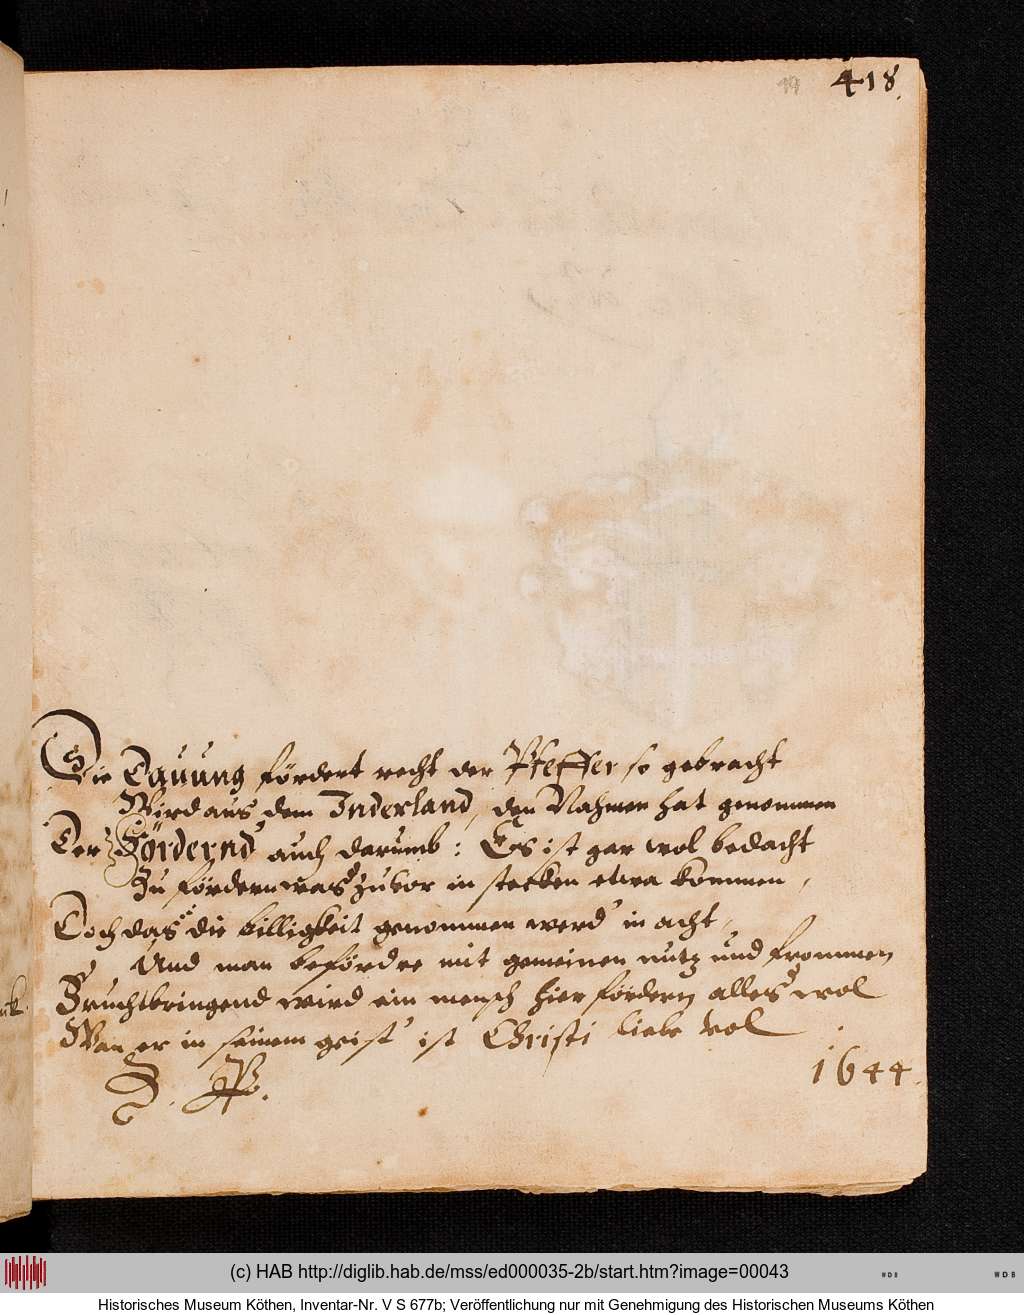 44 418.
Die Dauung fördert recht der Pfeffer so gebracht
Wird aus dem Inderland, den Nahmen hat genommen
Der Fördernd' auch darumb: Es ist gar wol bedacht
Zu fördern was zuvor in stecken etwa kommen,
Doch das die billigkeit genommen werd' in acht,
Und man befördre mit gemeinen nutz und frommen
Fruchtbringend wird ein mensch hier fördern alles wol
Wan er in seinem geist' ist Christi liebe vol
1644.
(c) HAB http://diglib.hab.de/mss/ed000035-2b/start.htm?image=00043
WDB WDB
Historisches Museum Köthen, Inventar-Nr. V S 677b; Veröffentlichung nur mit Genehmigung des Historischen Museums Köthen